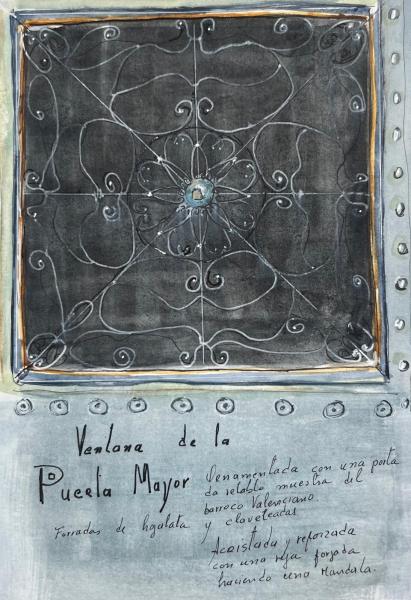 Ventana de la
Puerta Mayor
Forradas de hojalata
Ornamentada con una porta
da retablo muestra del
barroco Valenciano.
y claveteadas
Acristalada y reforzada
con una reja forjada
haciendo una Mandala.